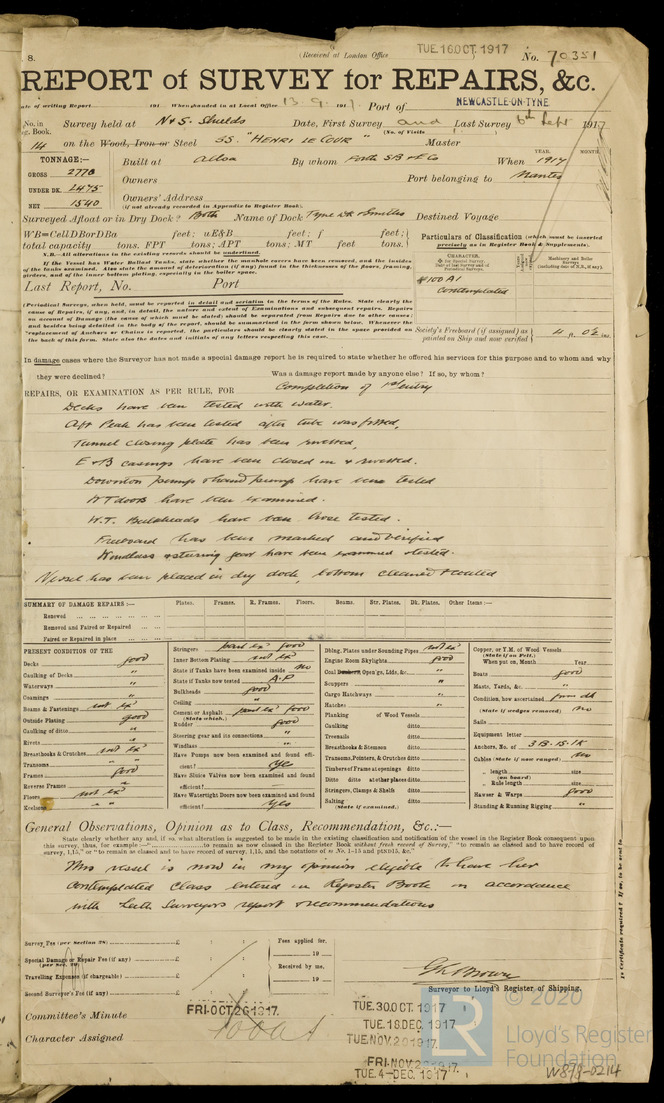 8.
(Received at London Office
TUE. 16 OCT. 1917
No. 70351
REPORT of SURVEY for REPAIRS, &c.
of writing Report 191 When handed in at Local Office 13. 9. 1917. Port of NEWCASTLE-ON-TYNE
No. in Book. Survey held at N & S. Shields Date, First Survey and Last Survey 6th Sept 1917
(No. of Visits
14 on the Wood, Iron or Steel SS. "HENRI LE COUR" Master
TONNAGE:—
GROSS 2770
UNDER DK. 2475
NET 1540
Built at Alloa By whom Forth SB & Co When 1917
YEAR. MONTH.
Owners Port belonging to Nantes
Owners' Address
(if not already recorded in Appendix to Register Book).
Surveyed Afloat or in Dry Dock? Both Name of Dock Tyne Dk Destined Voyage
WB=CellDBorDBa feet; uE&B feet; f feet;
total capacity tons. FPT tons; APT tons; MT feet tons.
N.B.—All alterations in the existing records should be underlined.
If the Vessel has Water Ballast Tanks, state whether the manhole covers have been removed, and the insides
of the tanks examined. Also state the amount of deterioration (if any) found in the thicknesses of the floors, framing,
girders, and of the inner bottom plating, especially in the boiler space.
Last Report, No. Port
Particulars of Classification (which must be inserted
precisely as in Register Book & Supplements).
CHARACTER.
100 A1
contemplated
(Periodical Surveys, when held, must be reported in detail and seriatim in the terms of the Rules. State clearly the
cause of Repairs, if any, and, in detail, the nature and extent of Examinations and subsequent repairs. Repairs
on account of Damage (the cause of which must be stated) should be separated from Repairs due to other causes;
and besides being detailed in the body of the report, should be summarised in the form shown below. Whenever the
replacement of Anchors or Chains is reported, the particulars should be clearly stated in the space provided on
the back of this form. State also the dates and initials of any letters respecting this case.
Society's Freeboard (if assigned) as
painted on Ship and now verified 4 ft. 0½ ins.
In damage cases where the Surveyor has not made a special damage report he is required to state whether he offered his services for this purpose and to whom and why
they were declined? Was a damage report made by anyone else? If so, by whom?
REPAIRS, OR EXAMINATION AS PER RULE, FOR Completion of 1st entry
Decks have been tested with water.
Aft Peak has been tested after tube was fitted,
Tunnel closing plate has been riveted,
E & B casings have been closed in & riveted.
Downton pumps & hand pump have been tested
WT doors have been examined.
W.T. Bulkheads have been hose tested.
Freeboard has been marked and verified
Windlass & steering gear have been examined & tested.
Vessel has been placed in dry dock, bottom cleaned & coated
SUMMARY OF DAMAGE REPAIRS:— Plates. Frames. R. Frames. Floors. Beams. Str. Plates. Dk. Plates. Other Items:—
Renewed
Removed and Faired or Repaired
Faired or Repaired in place
PRESENT CONDITION OF THE
Decks good
Caulking of Decks "
Waterways "
Coamings "
Beams & Fastenings not exd
Outside Plating good
Caulking of ditto "
Rivets "
Breasthooks & Crutches not exd
Transoms " "
Frames good
Reverse Frames "
Floors not exd
Keelsons " "
Stringers part exd good
Inner Bottom Plating not exd
State if Tanks have been examined inside no
State if Tanks now tested A.P
Bulkheads good
Ceiling "
Cement or Asphalt part exd good
(State which.)
Rudder good
Steering gear and its connections "
Windlass "
Have Pumps now been examined and found efficient? Yes
Have Sluice Valves now been examined and found efficient?
Have Watertight Doors now been examined and found efficient? Yes
Dblng. Plates under Sounding Pipes not exd
Engine Room Skylights good
Coal Bunkers, Open'gs, Lids, &c. "
Scuppers "
Cargo Hatchways "
Hatches "
Planking of Wood Vessels
Caulking ditto
Treenails ditto
Breasthooks & Stemson ditto
Transoms, Pointers, & Crutches ditto
Timbers of Frame at openings ditto
Ditto ditto at other places ditto
Stringers, Clamps & Shelfs ditto
Salting ditto
(State if examined.)
Copper, or Y.M. of Wood Vessels
(State if on Felt.)
When put on, Month Year
Boats good
Masts, Yards, &c. "
Condition, how ascertained from dk
(State if wedges removed) no
Sails
Equipment letter
Anchors, No. of 3B. 1S. 1K
Cables (State if now ranged) no
" length size
(on board)
" Rule length size
Hawser & Warps good
Standing & Running Rigging "
General Observations, Opinion as to Class, Recommendation, &c.:—
State clearly whether any and, if so, what alteration is suggested to be made in the existing classification and notification of the vessel in the Register Book consequent upon
this survey, thus, for example:—" to remain as now classed in Register Book without fresh record of Survey," "to remain as classed and to have record of
survey, 1,15," or "to remain as classed and to have record of survey, 1,15, and the notations of ss No. 1-15 and ptND15, &c."
This vessel is now in my opinion eligible to have her
contemplated class entered in Register Book in accordance
with Leith Surveyors report & recommendations
Survey Fee (per Section 28) £ : :
Special Damage or Repair Fee (if any) £ : :
Travelling Expenses (if chargeable) £ : :
Second Surveyor's Fee (if any) £ : :
Fees applied for,
19
Received by me,
19
Surveyor to Lloyd's Register of Shipping.
Committee's Minute FRI. OCT 26 1917.
Character Assigned 100A1
TUE. 30 OCT. 1917
TUE. 18 DEC. 1917
TUE. NOV. 20 1917.
FRI. NOV. 2 1917.
TUE. 4-DEC. 1917
© 2020
LR
Lloyd's Register
Foundation
W878-0214